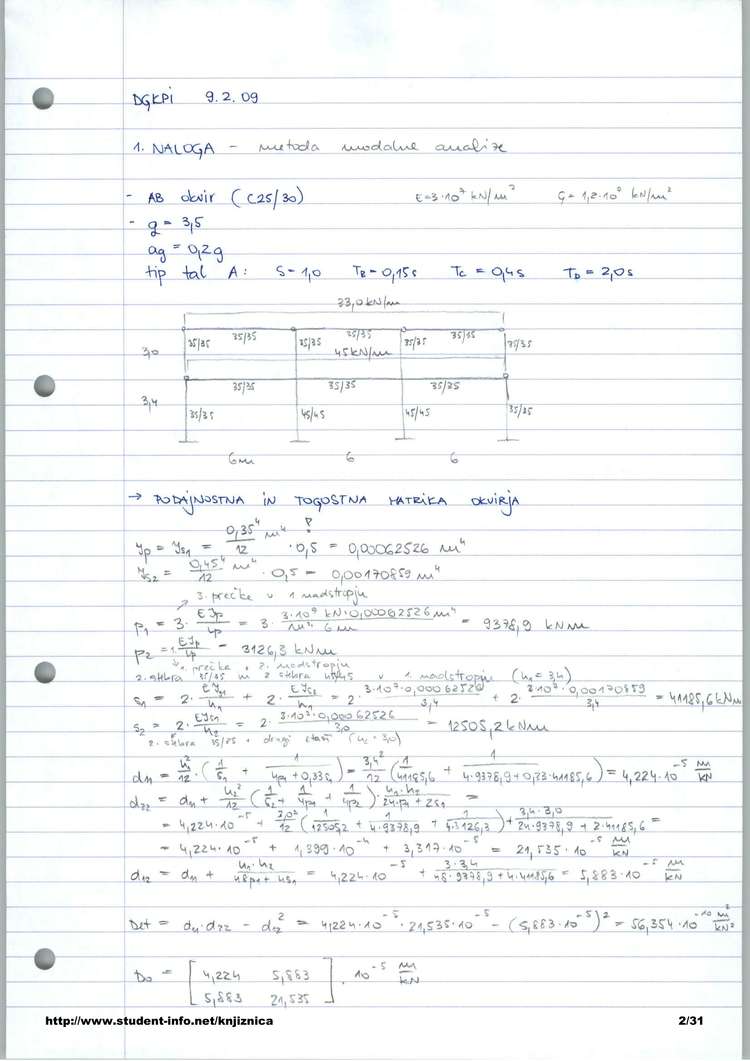 DGKPI 9.2.09
1. NALOGA - metoda modalne analize
- AB okvir (C25/30) E=3·10⁷ kN/m² G=1,2·10⁷ kN/m²
- g = 3,5
ag = 0,2g
tip tal A: S=1,0 TB=0,15s TC=0,4s TD=2,0s
33,0 kN/m
35/35 35/35 35/35
35/35 35/35 35/35 35/35
45 kN/m
3,0
35/35 35/35 35/35
3,4
35/35 45/45 45/45 35/35
6m 6 6
→ PODAJNOSTNA IN TOGOSTNA MATRIKA OKVIRJA
Jp = Js1 = 0,35⁴/12 m⁴ · 0,5 = 0,00062526 m⁴ !
Js2 = 0,45⁴ m⁴/12 · 0,5 = 0,00170859 m⁴
3. prečke v 1 nadstropju
p1 = 3· EJp/Lp = 3· 3·10⁷ kN·0,00062526 m⁴/m² 6m = 9378,9 kNm
p2 = 1· EJp/Lp = 3126,3 kNm
1. prečka v 2. nadstropju
2. stebra 35/35 in 2 stebra 45/45 v 1. nadstropju (h1=3,4)
s1 = 2· EJs1/h1 + 2· EJs2/h1 = 2· 3·10⁷·0,00062526/3,4 + 2· 3·10⁷·0,00170859/3,4 = 41185,6 kNm
s2 = 2· EJs1/h2 = 2· 3·10⁷·0,00062526/3,0 = 12505,2 kNm
2. stebra 35/35 v drugi etaži (h2=3,0)
d11 = h1²/12 · (1/s1 + 1/4p1+0,33s1) = 3,4²/12 (1/41185,6 + 1/4·9378,9+0,33·41185,6) = 4,224·10⁻⁵ m/kN
d22 = d11 + h2²/12 (1/s2 + 1/4p1 + 1/4p2) + h1·h2/24·p1+2s1 =
= 4,224·10⁻⁵ + 3,0²/12 (1/12505,2 + 1/4·9378,9 + 1/4·3126,3) + 3,4·3,0/24·9378,9+2·41185,6 =
= 4,224·10⁻⁵ + 1,399·10⁻⁴ + 3,317·10⁻⁵ = 21,535·10⁻⁵ m/kN
d12 = d11 + h1·h2/48p1+4s1 = 4,224·10⁻⁵ + 3·3,4/48·9378,9+4·41185,6 = 5,883·10⁻⁵ m/kN
Det = d11·d22 - d12² = 4,224·10⁻⁵·21,535·10⁻⁵ - (5,883·10⁻⁵)² = 56,354·10⁻¹⁰ m²/kN²
Do = [4,224 5,883
5,883 21,535] · 10⁻⁵ m/kN
http://www.student-info.net/knjiznica 2/31